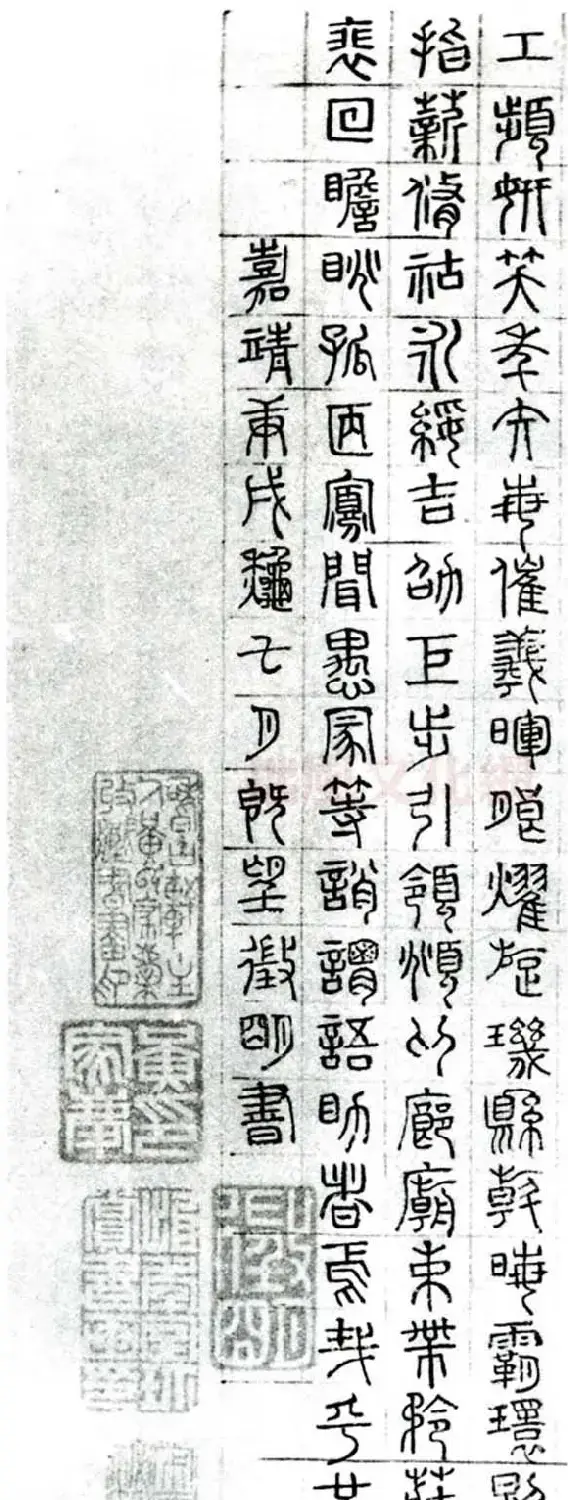 工頻妍笑年矢每催羲暉朗耀旋璣縣斡晦霸環照
指薪脩祜永綏吉劭巨步引領頫仰廊廟束帶矜莊
裴回瞻眺孤陋寡聞愚蒙等誚謂語助者焉哉乎也
嘉靖庚戌龝七月既望徵明書
徵明